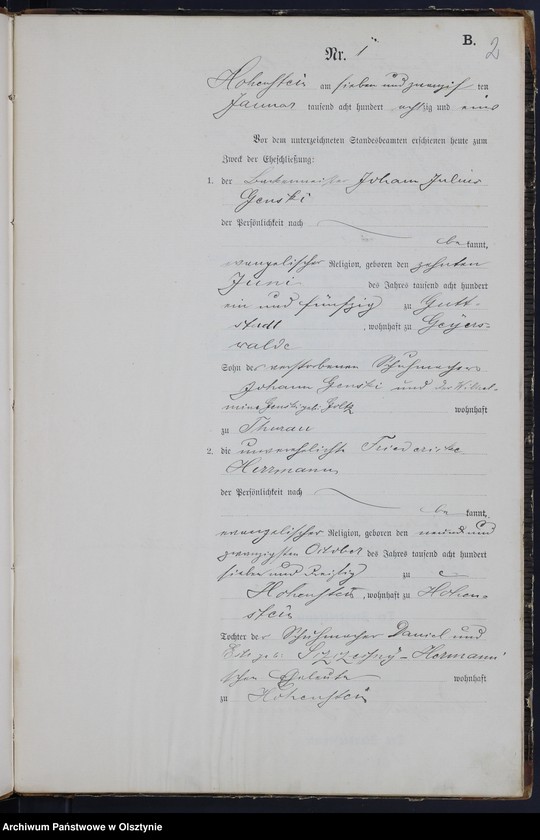 B. 2
Nr. 1
Hohenstein am sieben und zwanzigsten
Januar tausend acht hundert achtzig und eins
Vor dem unterzeichneten Standesbeamten erschienen heute zum
Zweck der Eheschließung:
1. der Johann Julius
Genski
der Persönlichkeit nach
bekannt,
evangelischer Religion, geboren den zehnten
Juni des Jahres tausend acht hundert
ein und fünfzig zu Gutt-
stadt, wohnhaft zu Geyers-
walde
Sohn des verstorbenen Schuhmachers
Johann Genski und der Wilhel-
mine Genski geb. wohnhaft
zu Thurau
2. die unverehelichte Friederike
Herrmann
der Persönlichkeit nach
bekannt,
evangelischer Religion, geboren den neun und
zwanzigsten October des Jahres tausend acht hundert
sieben und dreißig zu
Hohenstein, wohnhaft zu Hohen-
stein
Tochter der Schuhmacher Daniel und
geb. - Herrmann
schen Eheleute wohnhaft
zu Hohenstein
Archiwum Państwowe w Olsztynie